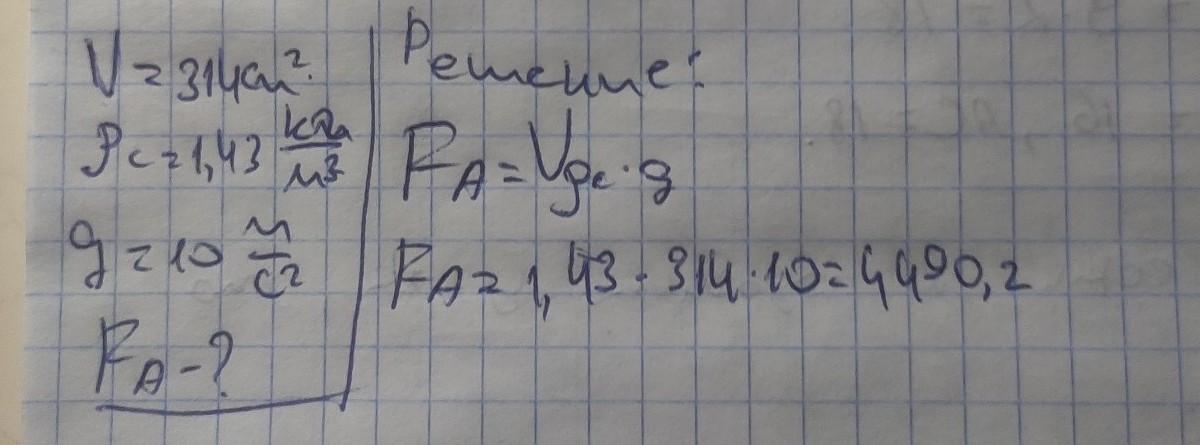 V = 314 см².
ρс = 1,43 кг/м³
g = 10 м/с²
FA - ?
Решение:
FA = Vρс · g
FA = 1,43 · 314 · 10 = 4490,2